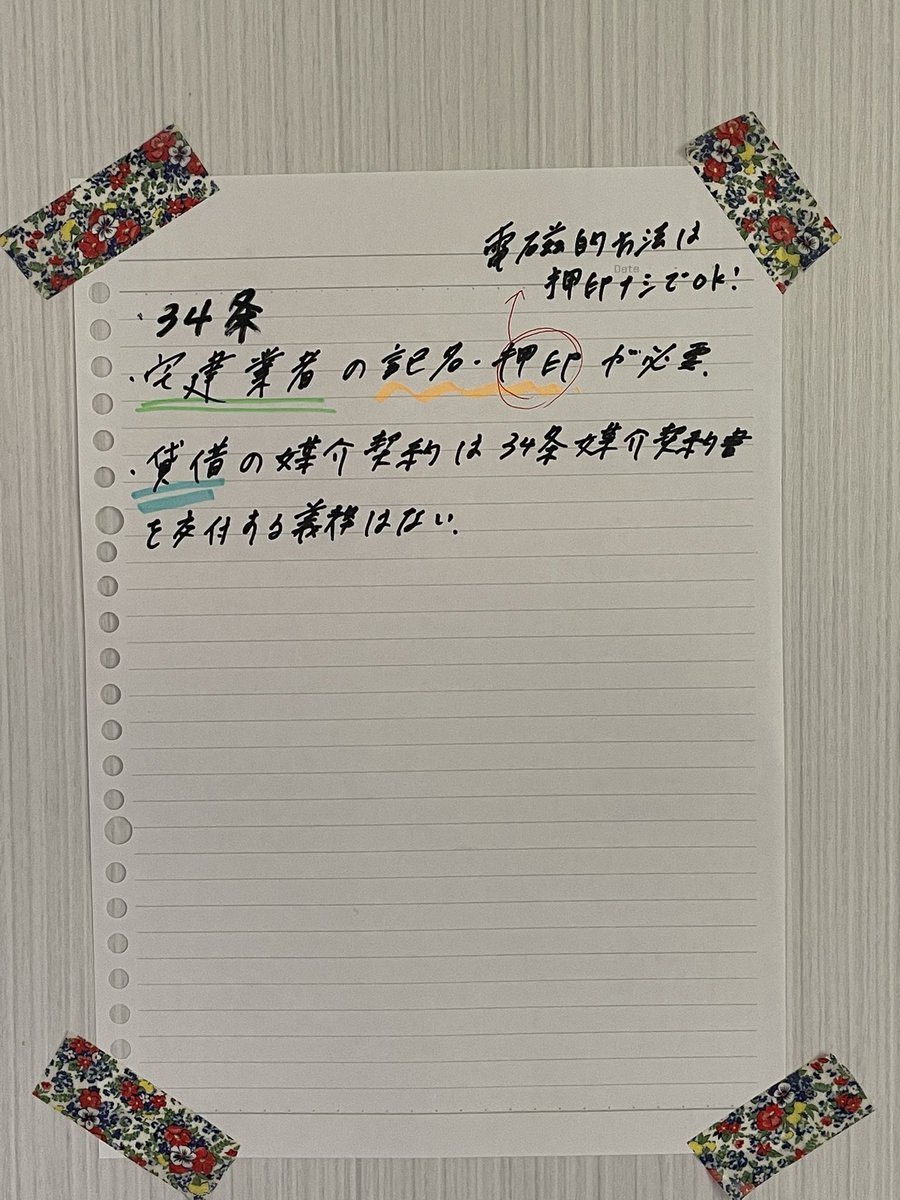 電磁的方法は
Date
押印ナシでOK!
34条
・宅建業者の記名・押印が必要.
・貸借の媒介契約は34条媒介契約書
を交付する義務はない.